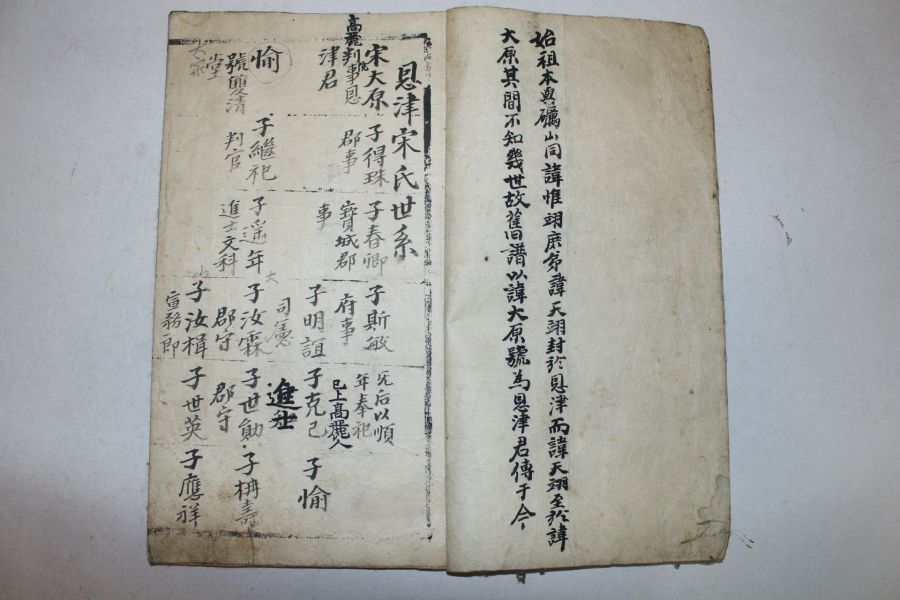 始祖本與礪山同諱惟翊庶第諱天翊封於恩津而諱天翊至於諱
大原其間不知幾世故舊譜以諱大原號為恩津君傳于今
恩津宋氏世系
宋大原
高麗判事恩
津君
子得珠
郡事
子春卿
寶城郡
事
子斯敏
府事
无后以順
年奉祀
子明誼
司憲
子克己
已上高麗人
進士
子愉
愉
號雙清
堂
子繼祀
判官
子遥年
進士文科
子汝霖
郡守
子世勛
郡守
子枏壽
子汝楫
宣務郎
子世英
子應祥